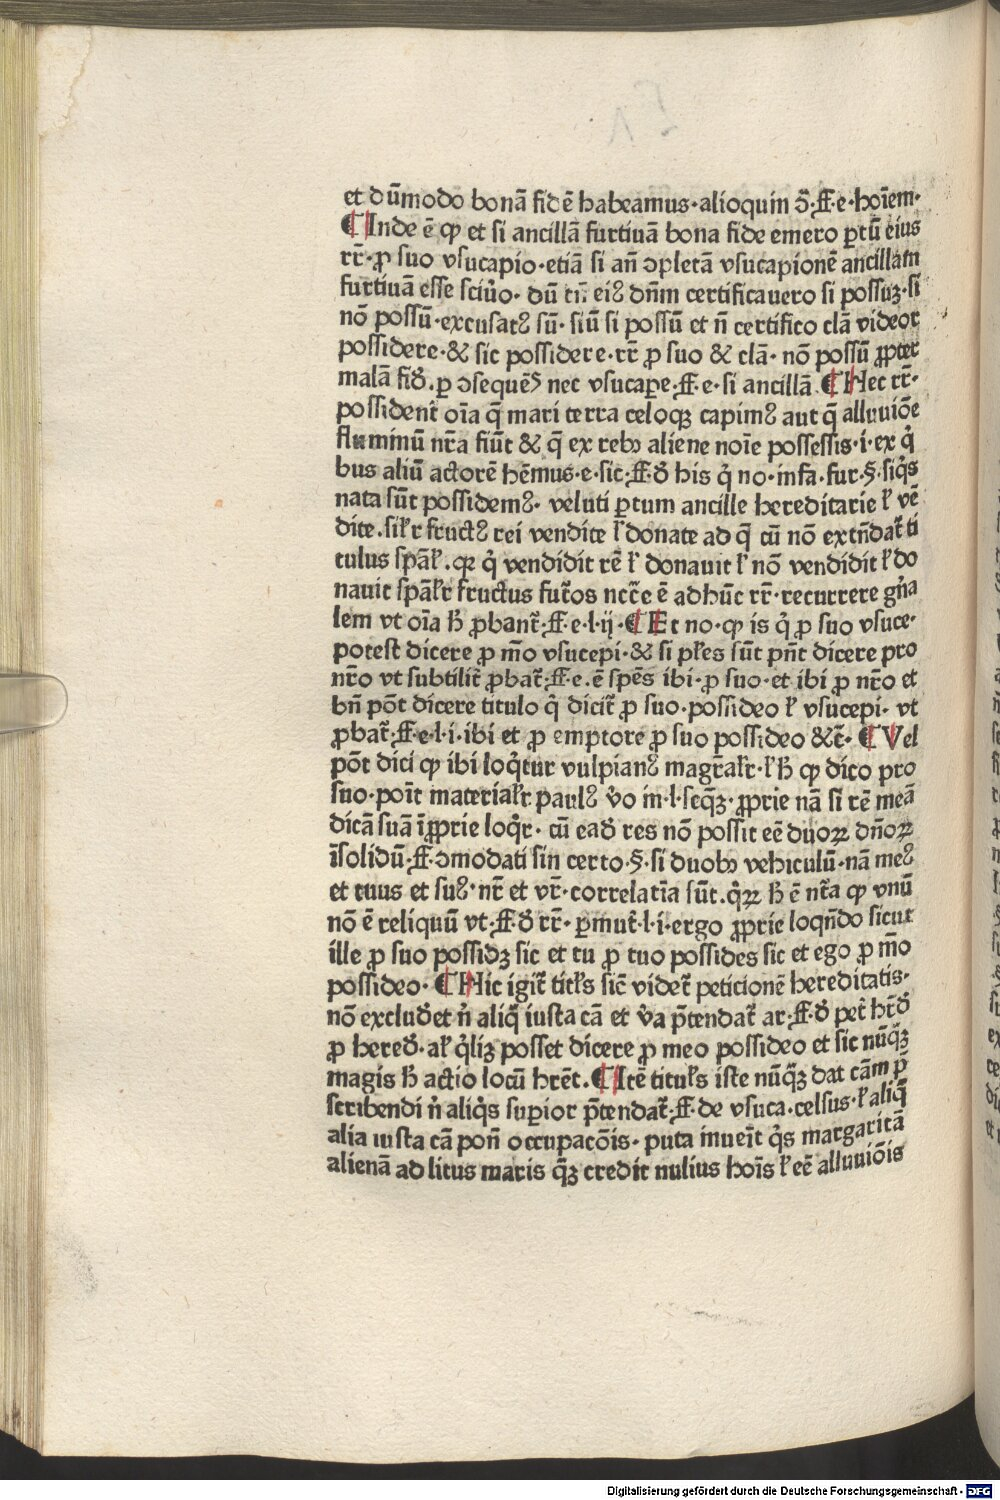 et dūmodo bonā fidē habeamus·alioquin ↄ̄·ff·e·hoīem·
¶Inde ē ꝙ et si ancillā furtiuā bona fide emero ꝑtū eius
rr̄·ꝓ suo vsucapio·etiā si an̄ ↄpletā vsucapionē ancillam
furtiuā esse sciu̓o· dū tn̄ eiꝰ dn̄m certificauero si possuꝫ·si
nō possū·excusatꝰ sū·siū si possū et n̄ certifico clā videor
possidere·& sic possidere·rr̄ ꝓ suo & clā·nō possū ꝓpter
malā fid̓.ꝑ ↄsequēs nec vsucaꝑe·ff·e·si ancillā ¶Hec rr̄·
possident̄ oīa q̄ mari terra celoqꝫ capimꝰ aut q̄ alluuiōe
fluminū nr̄a fiūt & q̄ ex rebꝫ aliene noīe possessis·i·ex q̓
bus aliū actorē hēmus·e·sic·ff·d̓ his q̓ no·infa·fur·§·siq̓s
nata sūt possidemꝰ· veluti ꝑtum ancille hereditarie ł vē
dite.silr fructꝰ rei vendite ł donate ad q̄ cū nō extn̄dat̄ ti
tulus spāł.qꝛ q̓ vendidit rē ł donauit ł nō vendidit ł do
nauit spāłr fructus fut̄os ncc̄e ē adhūc rr̄·recurrere gn̓a
lem vt oīa ħ ꝓbant̄·ff·e·l·ij·¶Et no·ꝙ is q̓ ꝓ suo vsuce·
potest dicere ꝓ m̄o vsucepi·& si płes sūt pn̄t dicere pro
nr̄o vt subtilit̄ ꝓbat̄·ff·e·ē spēs ibi·ꝓ suo·et ibi ꝓ nr̄o et
bn̄ pōt dicere titulo q̓ dicit̄ ꝓ suo·possideo ł vsucepi· vt
ꝓbat̄·ff·e·l·i·ibi et ꝓ emptore ꝓ suo possideo &c̄· ¶Vel
pōt dici ꝙ ibi loq̓tur vulpianꝰ magr̄ałr·ł ħ ꝙ dico pro
suo·poīt materiałr paulꝰ v̓o in·l·seqꝫ·ꝓprie nā si rē meā
dicā suā īꝓprie loq̓r· cū ead̓ res nō possit eē duoꝝ dn̄oꝝ
īsolidū·ff·ↄmodati sin certo·§·si duobꝫ vehiculū·nā meꝰ
et tuus et suꝰ·nr̄ et vr̄·correlatīa sūt.q̓ꝝ ħ ē nt̄a ꝙ vnū
nō ē reliquū vt·ff·d̓ rr̄·ꝑmut̄·l·i·ergo ꝓprie loqn̄do sicut
ille ꝓ suo possidꝫ sic et tu ꝓ tuo possides sic et ego ꝓ m̄o
possideo·¶Hic igit̄ titłs sic̄ videt̄ peticionē hereditatis·
nō exclud̓et n̄ aliq̄ iusta cā et v̓a p̄tendat̄ ar·ff·d̓ pet̄ hr̄d̓
ꝓ hered̓·ał q̓liꝫ posset dicere ꝓ meo possideo et sic nūqꝫ
magis ħ actio locū hrēt.¶Itē titułs iste nūqꝫ dat cām p̄
scribendi n̄ aliq̓s suꝑior p̄tendat̄·ff·de vsuca·celsus·ł aliq̄
alia iusta cā pon̄ occupacōis·puta inueīt q̓s margaritā
alienā ad litus maris qꝫ credit nulius hoīs ł eē alluuiōis
Digitalisierung gefördert durch die Deutsche Forschungsgemeinschaft - DFG